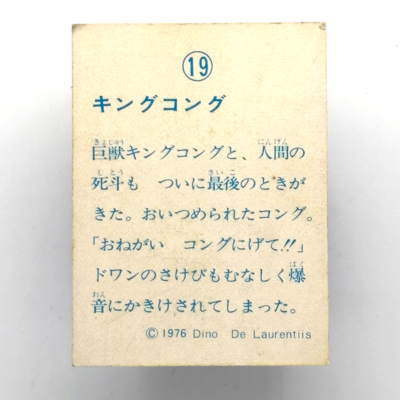 19
キングコング
巨獣キングコングと、人間の
死斗も ついに最後のときが
きた。おいつめられたコング。
「おねがい コングにげて!!」
ドワンのさけびもむなしく爆
音にかきけされてしまった。
© 1976 Dino De Laurentiis